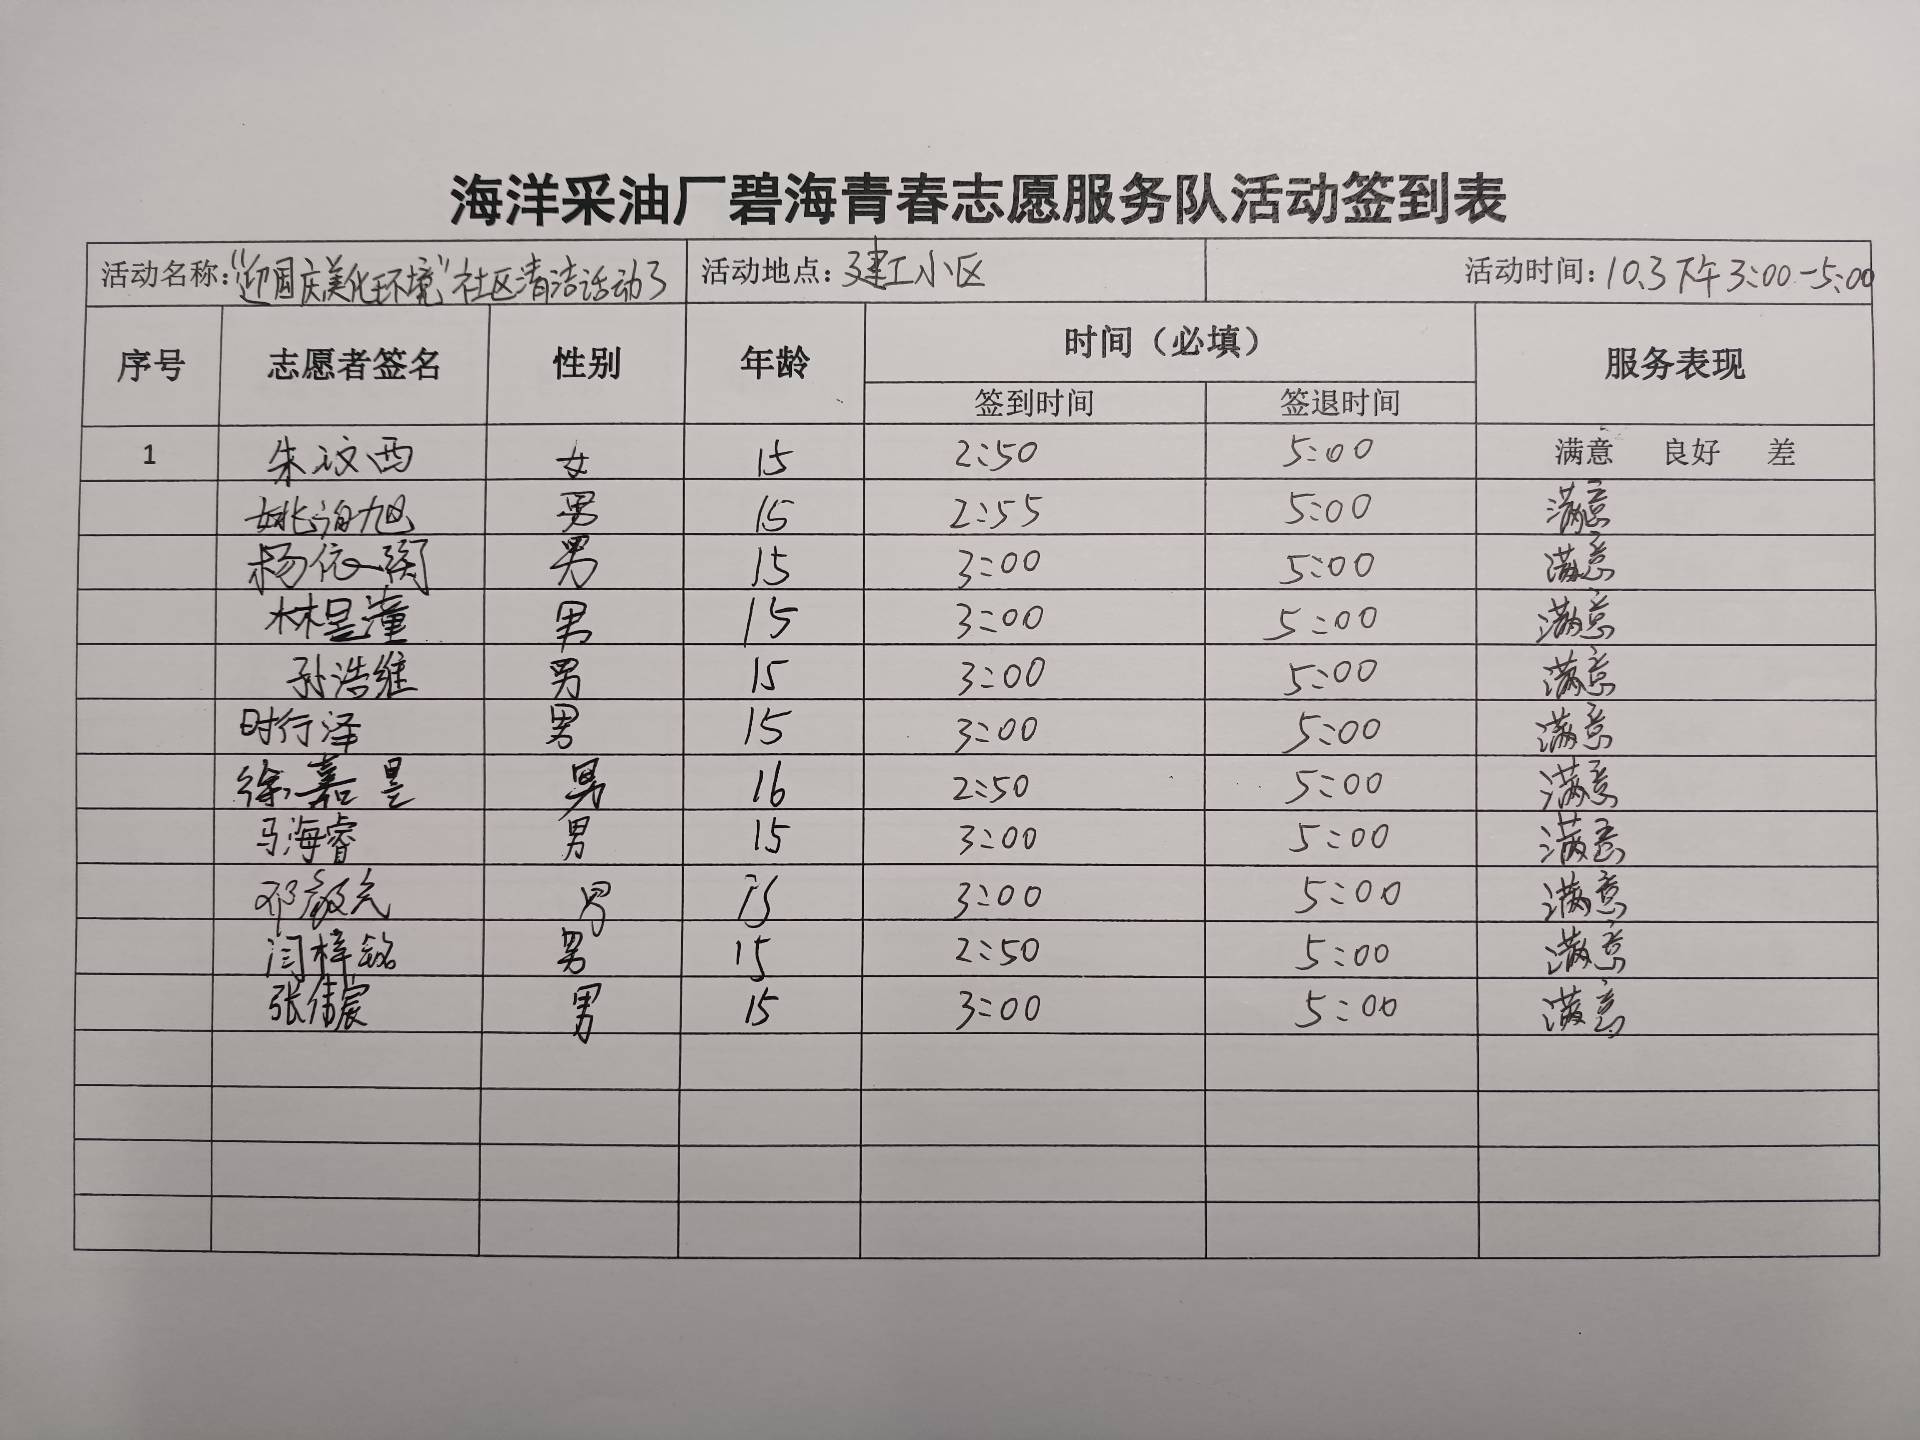 海洋采油厂碧海青春志愿服务队活动签到表
活动名称:“迎国庆美化环境”社区清洁活动3 活动地点:建工小区 活动时间:10.3下午3:00-5:00
序号 志愿者签名 性别 年龄 时间（必填） 服务表现
签到时间 签退时间
1 朱汶西 女 15 2:50 5:00 满意 良好 差
姚 旭 男 15 2:55 5:00 满意
杨依 男 15 3:00 5:00 满意
林昱潼 男 15 3:00 5:00 满意
孙浩维 男 15 3:00 5:00 满意
时行泽 男 15 3:00 5:00 满意
徐嘉昱 男 16 2:50 5:00 满意
马海睿 男 15 3:00 5:00 满意
邓 男 15 3:00 5:00 满意
闫梓铭 男 15 2:50 5:00 满意
张倬宸 男 15 3:00 5:00 满意